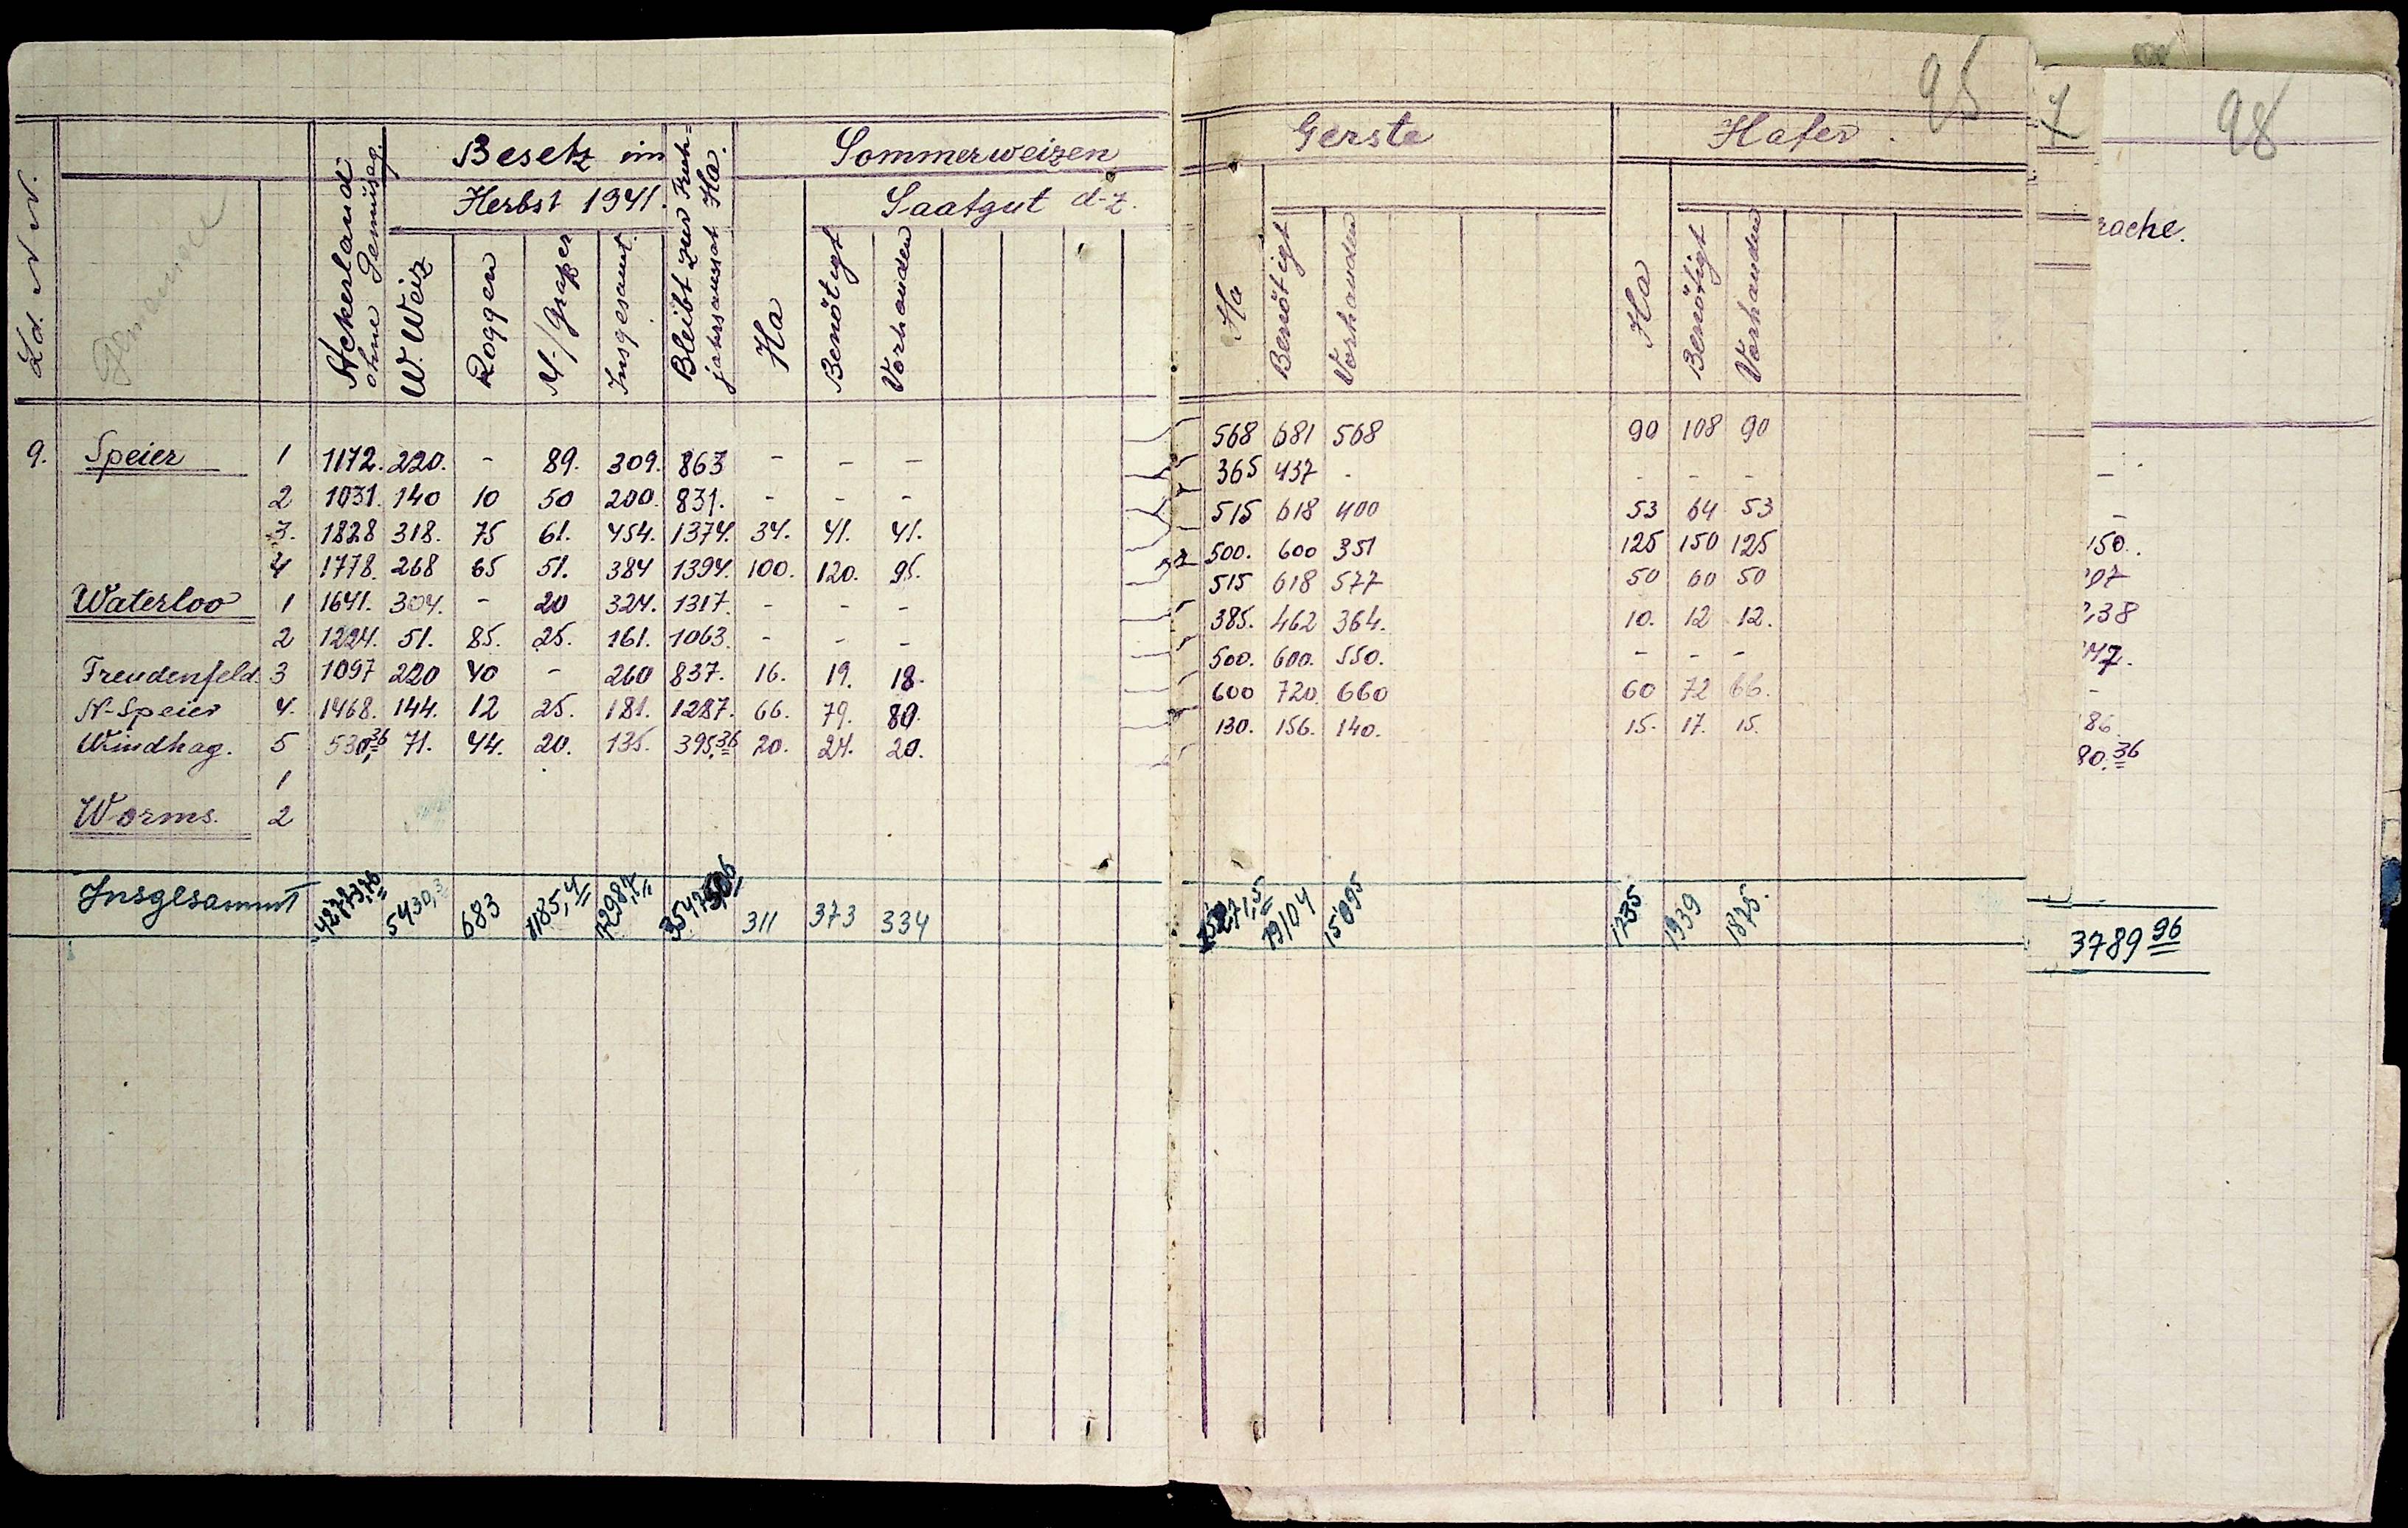 95
7
98
Ld. Nr.
Gemeinde
Ackerland ohne Gemüsag.
Besetz im
Herbst 1941.
W. Weiz
Roggen
Insgesamt.
Bleibt zur Früh= jahrsaussat Ha.
Sommerweizen
Ha
Saatgut d-z.
Benötigt
Vorhanden
Gerste
Ha
Benötigt
Vorhanden
Hafer.
Ha
Benötigt
Vorhanden
rache.
9. Speier 1 1172. 220. - 89. 309. 863 - - - 568 681 568 90 108 90
2 1031. 140 10 50 200. 831. - - - 365 437 - - - - -
3. 1828 318. 75 61. 454. 1374. 34. 41. 41. 515 618 400 53 64 53 -
4 1778. 268 65 51. 384 1394. 100. 120. 95. 500. 600 351 125 150 125 150.
Waterloo 1 1641. 304. - 20 324. 1317. - - - 515 618 577 50 60 50 97
2 1224. 51. 85. 25. 161. 1063. - - - 385. 462 364. 10. 12 12. 238
Freudenfeld. 3 1097 220 40 - 260 837. 16. 19. 18. 500. 600. 550. - - - 47.
N-Speier 4. 1468. 144. 12 25. 181. 1287. 66. 79. 80. 600 720 660 60 72 66. -
Windhag. 5 530,36 71. 44. 20. 135. 395,36 20. 24. 20. 130. 156. 140. 15. 17. 15. 86.
1 80.36
Worms. 2
Insgesammt 683 1185,4 311 373 334 19104 15095 1939 1875. 3789 96